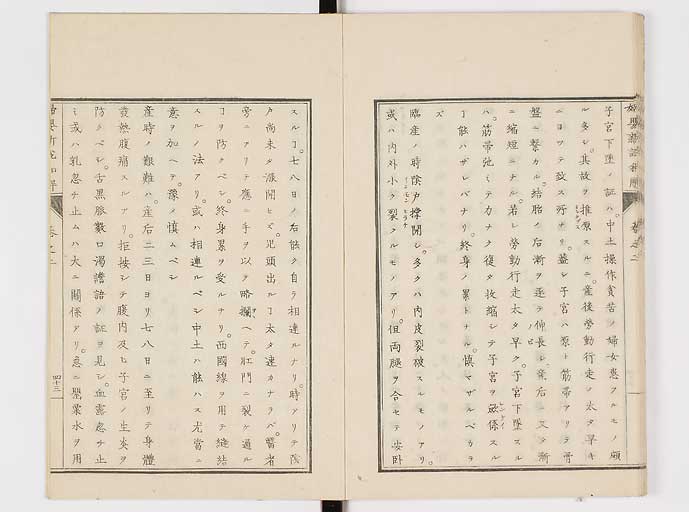 子宮下墜ノ証ハ中土操作貧苦ノ婦女患フルモノ頗
ル多シ其故ヲ推原スルニ産後労動行走ノ太タ早キ
ニヨツテ致ス所ナリ蓋シ子宮ハ原ト筋帯アリテ骨
盤ニ繋カル結胎ノ后漸ヲ逐テ伸長シ産后ニ又タ漸
ニ縮短ニナル若シ労動行走太タ早ク子宮下墜スル
ハ筋帯弛ミテ力ナク復タ收縮シテ子宮ヲ スル
ヿ能ハザレバナリ終身ノ累トナル慎マザルベカラ
ズ
臨産ノ時陰戸撑開シ多クハ内皮裂破スルモノアリ
或ハ内外小ク裂クルモノアリ但両腿ヲ合セテ安卧
スルヿ七八日ノ后能ク自ラ相連ルナリ時アリテ陰
戸尚未タ漲開セズ児頭出ルヿ太タ速カナラバ醫者
旁ニアリテ應ニ手ヲ以テ略攔ヘテ肛門ニ裂ケ通ル
ヿヲ防クベシ終身累ヲ受ルナリ西國線ヲ用テ縫結
スルノ法アリ或ハ相連ルベシ中土ハ能ハス尤當ニ
意ヲ加ヘテ豫メ慎ムベシ
産時ノ艱難ハ産后二三日ヨリ七八日ニ至リテ身體
發熱腹痛スルアリ拒按シテ腹内及ヒ子宮ノ生炎ヲ
防クベシ舌黒脈數口渇譫語ノ証ヲ見シ血露忽チ止
ミ或ハ乳忽チ止ムハ大ニ關係アリ急ニ罌粟水ヲ用
四十三